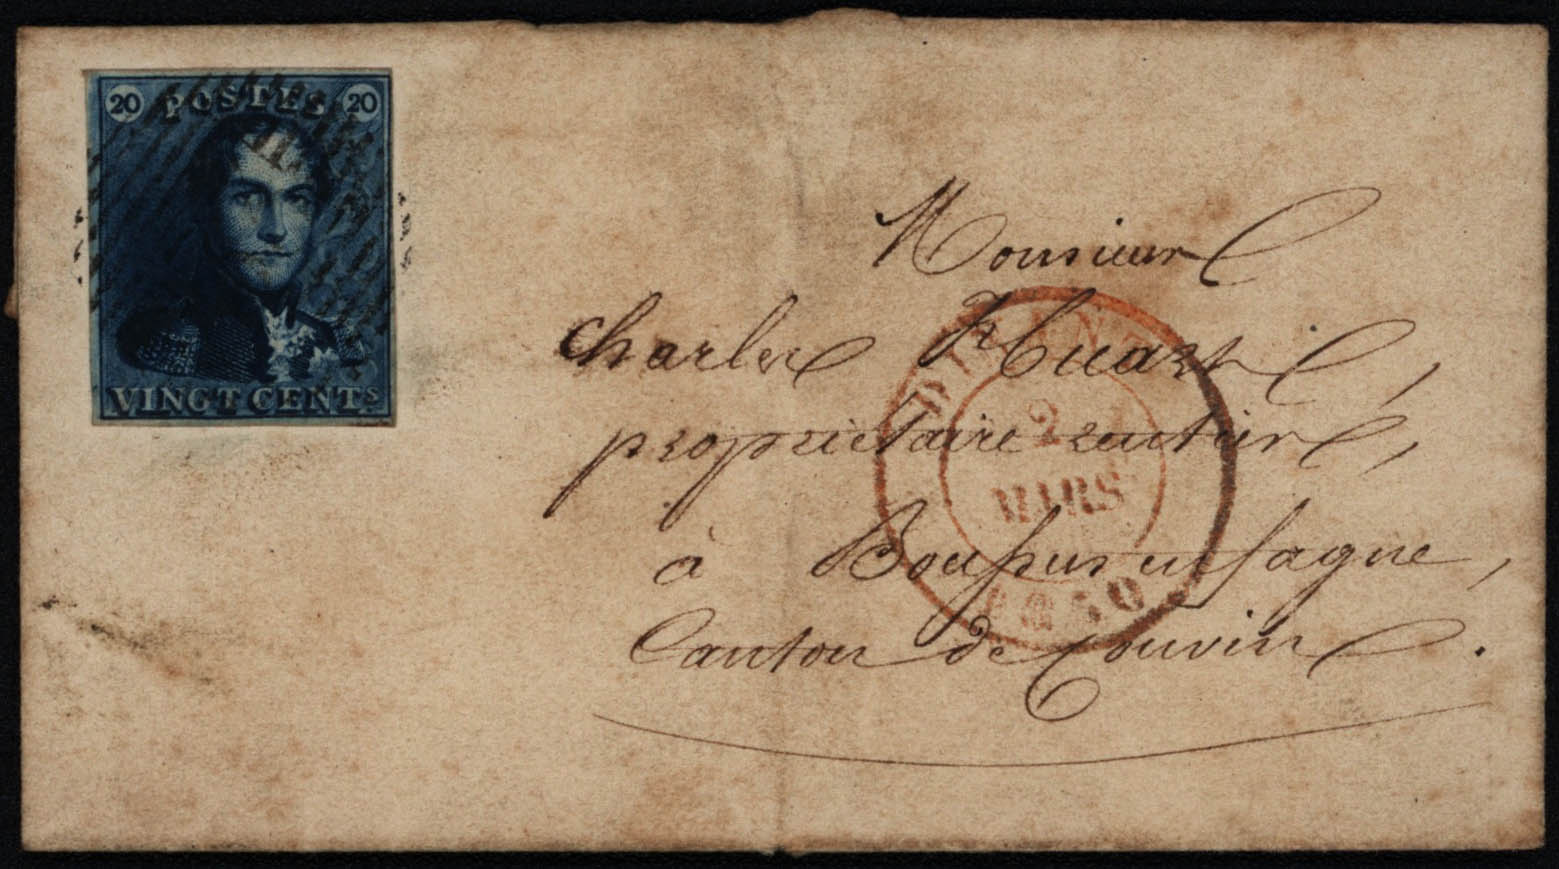 20 POSTES 20
VINGT CENTS
Monsieur
Charles Huart,
propriétaire rentier,
à Boussu en fagne,
Canton de Couvin.
2
MARS
1850